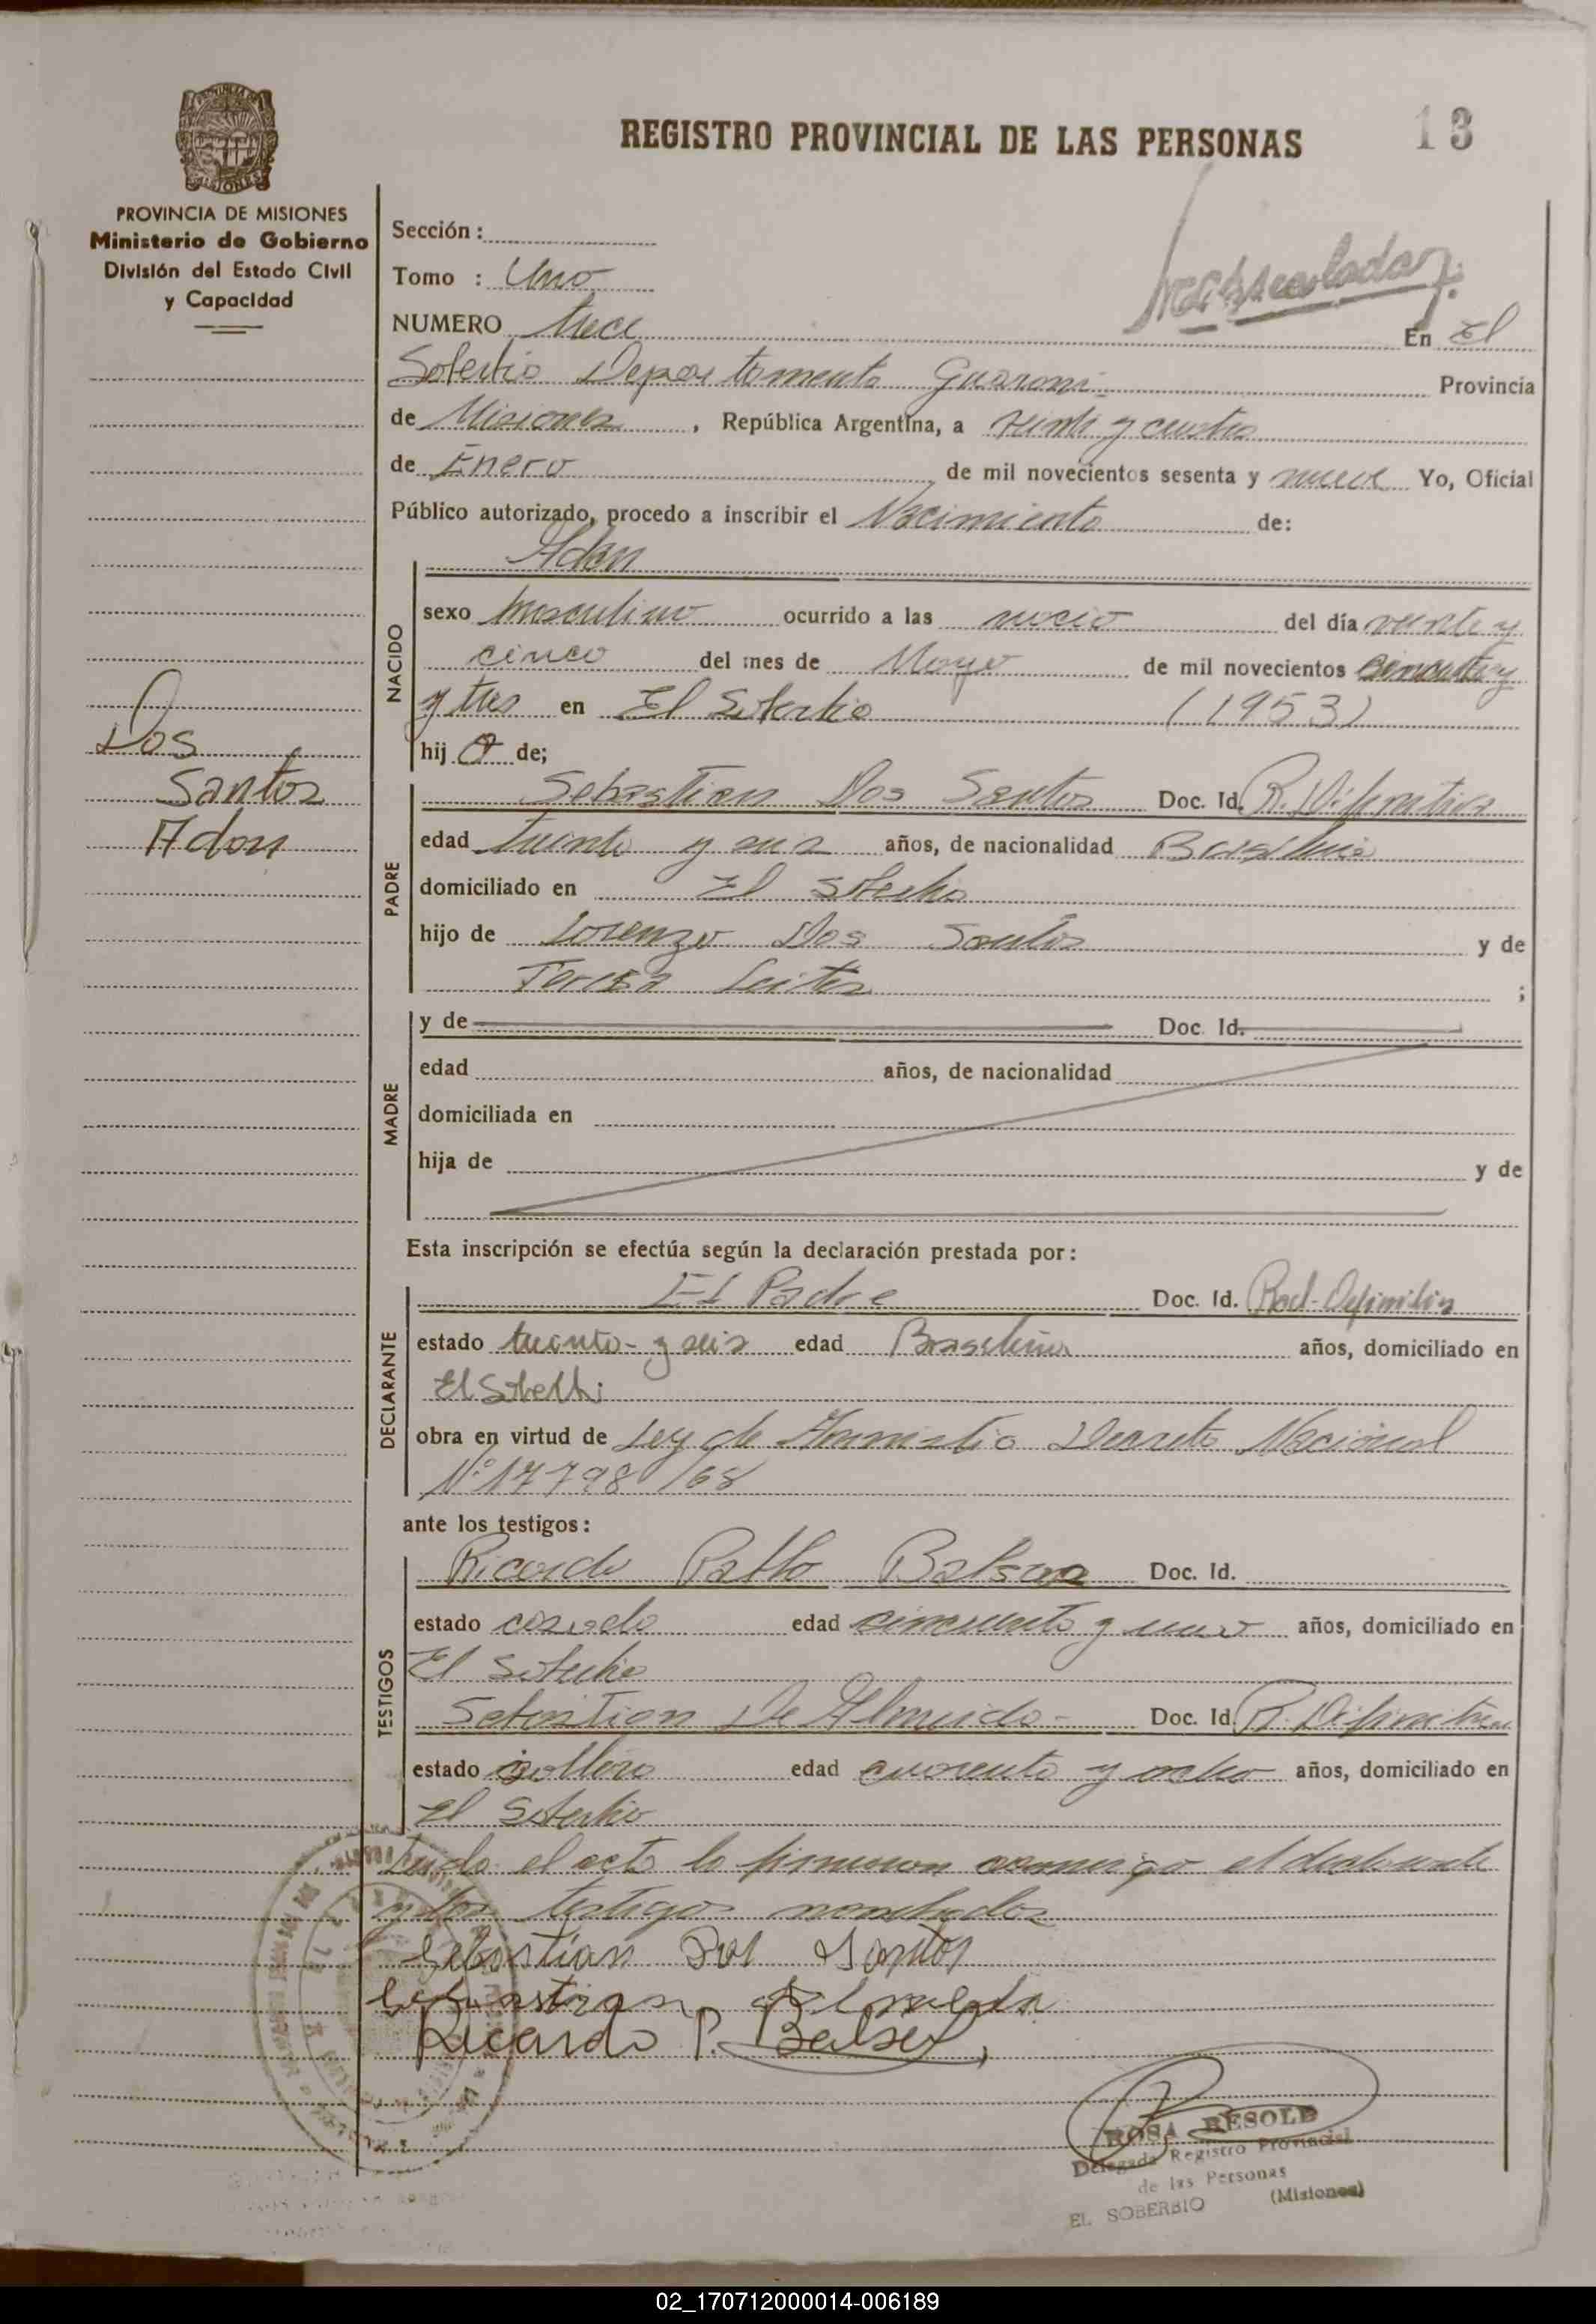 REGISTRO PROVINCIAL DE LAS PERSONAS
13
PROVINCIA DE MISIONES
Ministerio de Gobierno
División del Estado Civil
y Capacidad
Dos
Santos
Adan
Sección :
Tomo : Uno
NUMERO trece En El
Soberbio Departamento Guarani Provincia
de Misiones , República Argentina, a veinte y cuatro
de Enero de mil novecientos sesenta y nueve Yo, Oficial
Público autorizado, procedo a inscribir el Nacimiento de:
Adan
NACIDO
sexo masculino ocurrido a las del día veinte y
cinco del mes de Mayo de mil novecientos cincuenta y
y tres en El Soberbio (1953)
hij o de;
PADRE
Sebastian Dos Santos Doc. Id. R. Definitiva
edad treinta y seis años, de nacionalidad Brasileño
domiciliado en El Soberbio
hijo de Lorenzo Dos Santos y de
Teresa Leites ;
MADRE
y de Doc. Id.
edad años, de nacionalidad
domiciliada en
hija de y de
Esta inscripción se efectúa según la declaración prestada por:
DECLARANTE
El Padre Doc. Id. Rad-Definitiva
estado treinta y seis edad Brasileño años, domiciliado en
El Soberbio
obra en virtud de Ley de Amnistia Decreto Nacional
Nº 17798/68
ante los testigos:
TESTIGOS
Ricardo Pablo Doc. Id.
estado casado edad cincuenta y uno años, domiciliado en
El Soberbio
Sebastian De Almeida - Doc. Id. R. Definitiva
estado soltero edad cuarenta y ocho años, domiciliado en
El Soberbio
Leida el acta lo firmaron conmigo el declarante
y los testigos nombrados
Sebastian Dos Santos
Sebastian Almeida
Ricardo P.
ROSA RESOLB
Delegada Registro Provincial
de las Personas
EL SOBERBIO (Misiones)
02_170712000014-006189